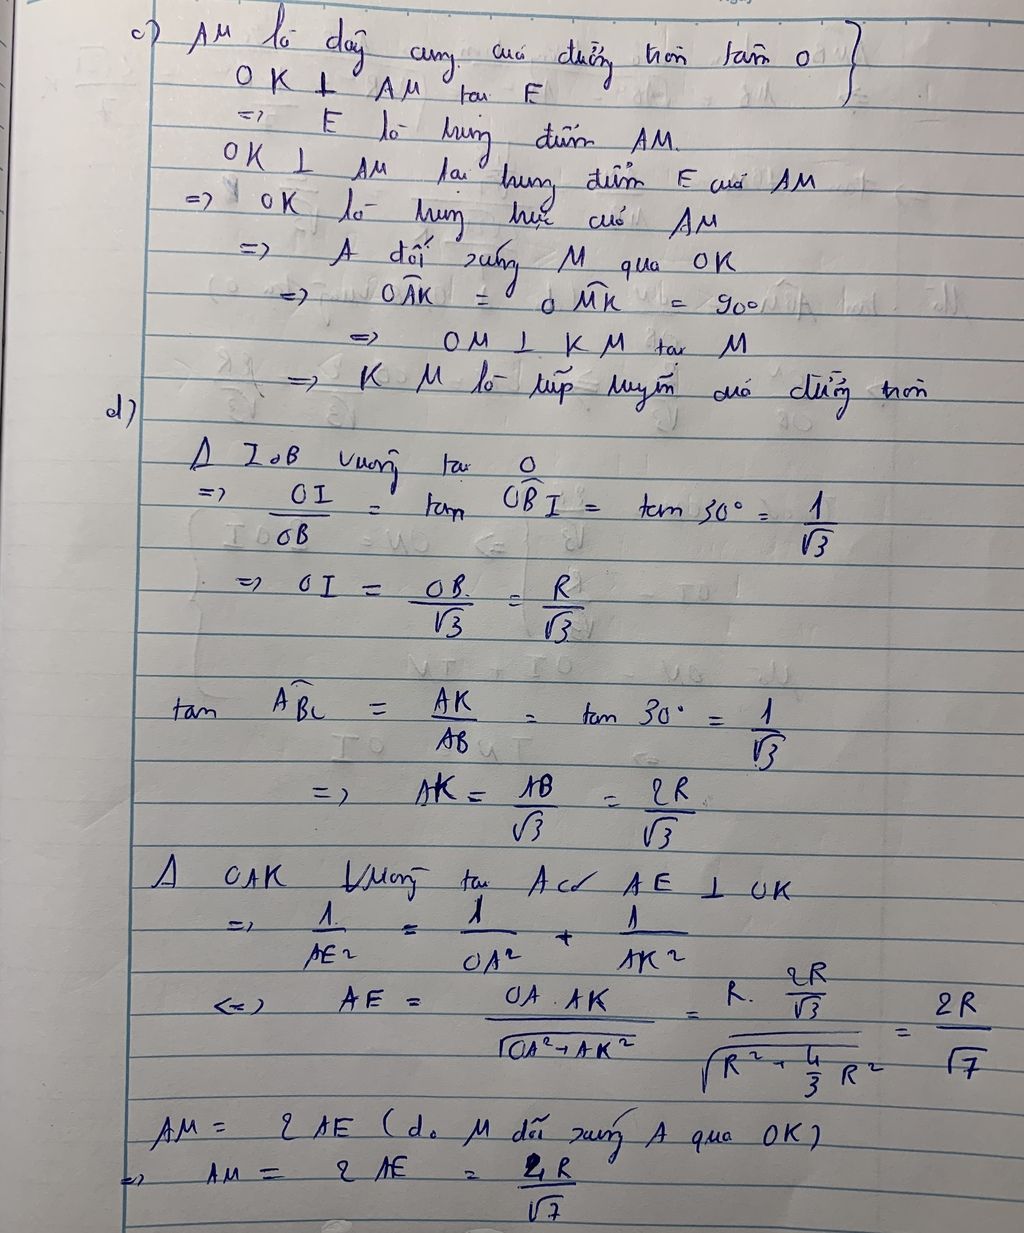 c) AM là dây cung của đường tròn tâm O }
OK ⊥ AM tại E
=> E là trung điểm AM.
OK ⊥ AM tại trung điểm E của AM
=> OK là trung trực của AM
=> A đối xứng M qua OK
=> \widehat{OAK} = \widehat{OMK} = 90°
=> OM ⊥ KM tại M
=> KM là tiếp tuyến của đường tròn
d)
Δ IOB vuông tại O
=> \frac{OI}{OB} = tan \widehat{OBI} = tan 30° = \frac{1}{\sqrt{3}}
=> OI = \frac{OB}{\sqrt{3}} = \frac{R}{\sqrt{3}}
tan \widehat{ABC} = \frac{AK}{AB} = tan 30° = \frac{1}{\sqrt{3}}
=> AK = \frac{AB}{\sqrt{3}} = \frac{2R}{\sqrt{3}}
Δ OAK vuông tại A có AE ⊥ OK
=> \frac{1}{AE^2} = \frac{1}{OA^2} + \frac{1}{AK^2}
<=> AE = \frac{OA . AK}{\sqrt{OA^2 + AK^2}} = \frac{R. \frac{2R}{\sqrt{3}}}{\sqrt{R^2 + \frac{4}{3} R^2}} = \frac{2R}{\sqrt{7}}
AM = 2 AE (do M đối xứng A qua OK)
=> AM = 2 AE = \frac{4R}{\sqrt{7}}